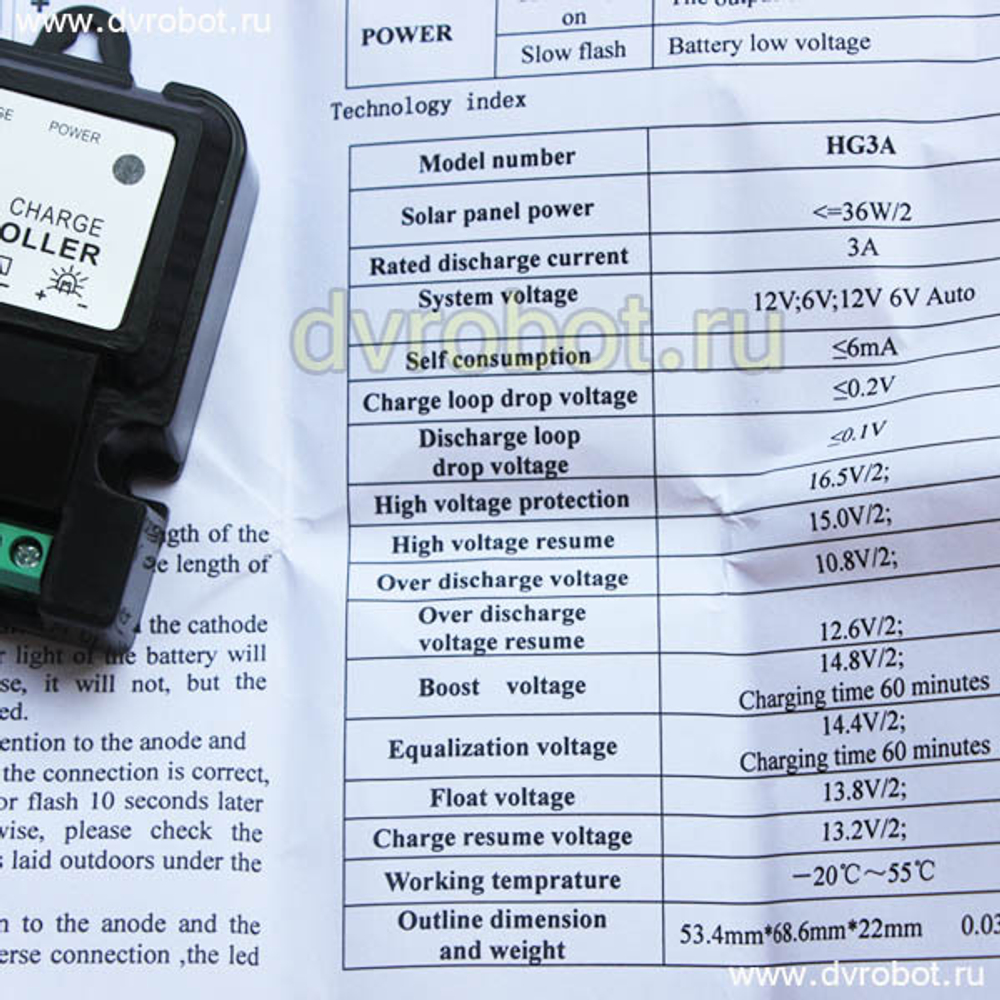 www.dvrobot.ru
POWER
on
Slow flash
Battery low voltage
Technology index
Model number HG3A
Solar panel power <=36W/2
Rated discharge current 3A
System voltage 12V;6V;12V 6V Auto
dvrobot.ru
Self consumption ≤6mA
Charge loop drop voltage ≤0.2V
Discharge loop
drop voltage ≤0.1V
High voltage protection 16.5V/2;
High voltage resume 15.0V/2;
Over discharge voltage 10.8V/2;
Over discharge
voltage resume 12.6V/2;
Boost voltage 14.8V/2;
Charging time 60 minutes
Equalization voltage 14.4V/2;
Charging time 60 minutes
Float voltage 13.8V/2;
Charge resume voltage 13.2V/2;
Working temprature −20℃~55℃
Outline dimension
and weight 53.4mm*68.6mm*22mm 0.03
POWER
CHARGE
OLLER
+ -
of the
length of
the cathode
light of the battery will
it will not, but the
to the anode and
the connection is correct,
flash 10 seconds later
please check the
laid outdoors under the
to the anode and the
connection ,the led
www.dvrobot.ru